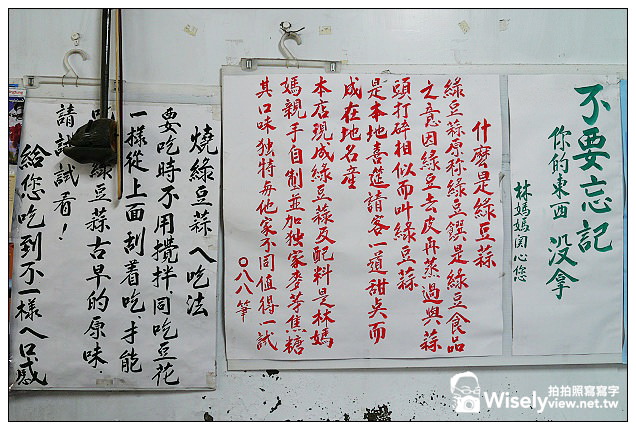 不要忘記
你的東西 没拿
林媽媽関心您
什麼是綠豆蒜
綠豆蒜原称綠豆饌是綠豆食品
之意因綠豆去皮再蒸過與蒜
頭打碎相似而叫綠豆蒜
是本地喜筵請客一道甜奌而
成在地名產
本店現成綠豆蒜及配料是林媽
媽親手自制並加独家麥芽焦糖
其口味独特与他家不同值得一試
〇八八筆
燒綠豆蒜ㄟ吃法
要吃時不用攪拌.同吃豆花
一樣從上面刮着吃才能
吃 綠豆蒜古早的原味.
請試試看!
給您吃到不一樣ㄟ口感
拍拍照寫寫字
Wiselyview.net.tw